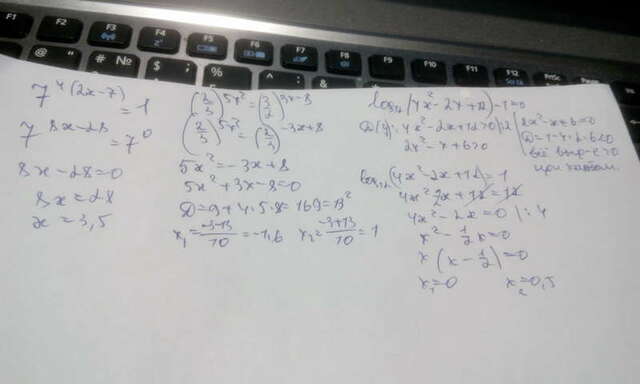 F1 F2 F3 F4 F5 F6 F7 F8 F9 F10 F11 F12 Prt Sc
@ # № $ %
7^{4(2x-7)} = 1
7^{8x-28} = 7^0
8x-28=0
8x=28
x=3,5
(2/3)^{5x^2} = (3/2)^{3x-8}
(2/3)^{5x^2} = (2/3)^{-3x+8}
5x^2=-3x+8
5x^2+3x-8=0
D=9+4·5·8=169=13^2
x_1=(-3-13)/10=-1,6 x_2=(-3+13)/10=1
log_{12}(4x^2-2x+12)-1=0
D(y): 4x^2-2x+12>0 |:2
2x^2-x+6>0
2x^2-x+6=0
D=1-4·2·6<0
всё выр-е>0
при каждом
log_{12}(4x^2-2x+12)=1
4x^2-2x+12=12
4x^2-2x=0 |:4
x^2-1/2x=0
x(x-1/2)=0
x_1=0 x_2=0,5